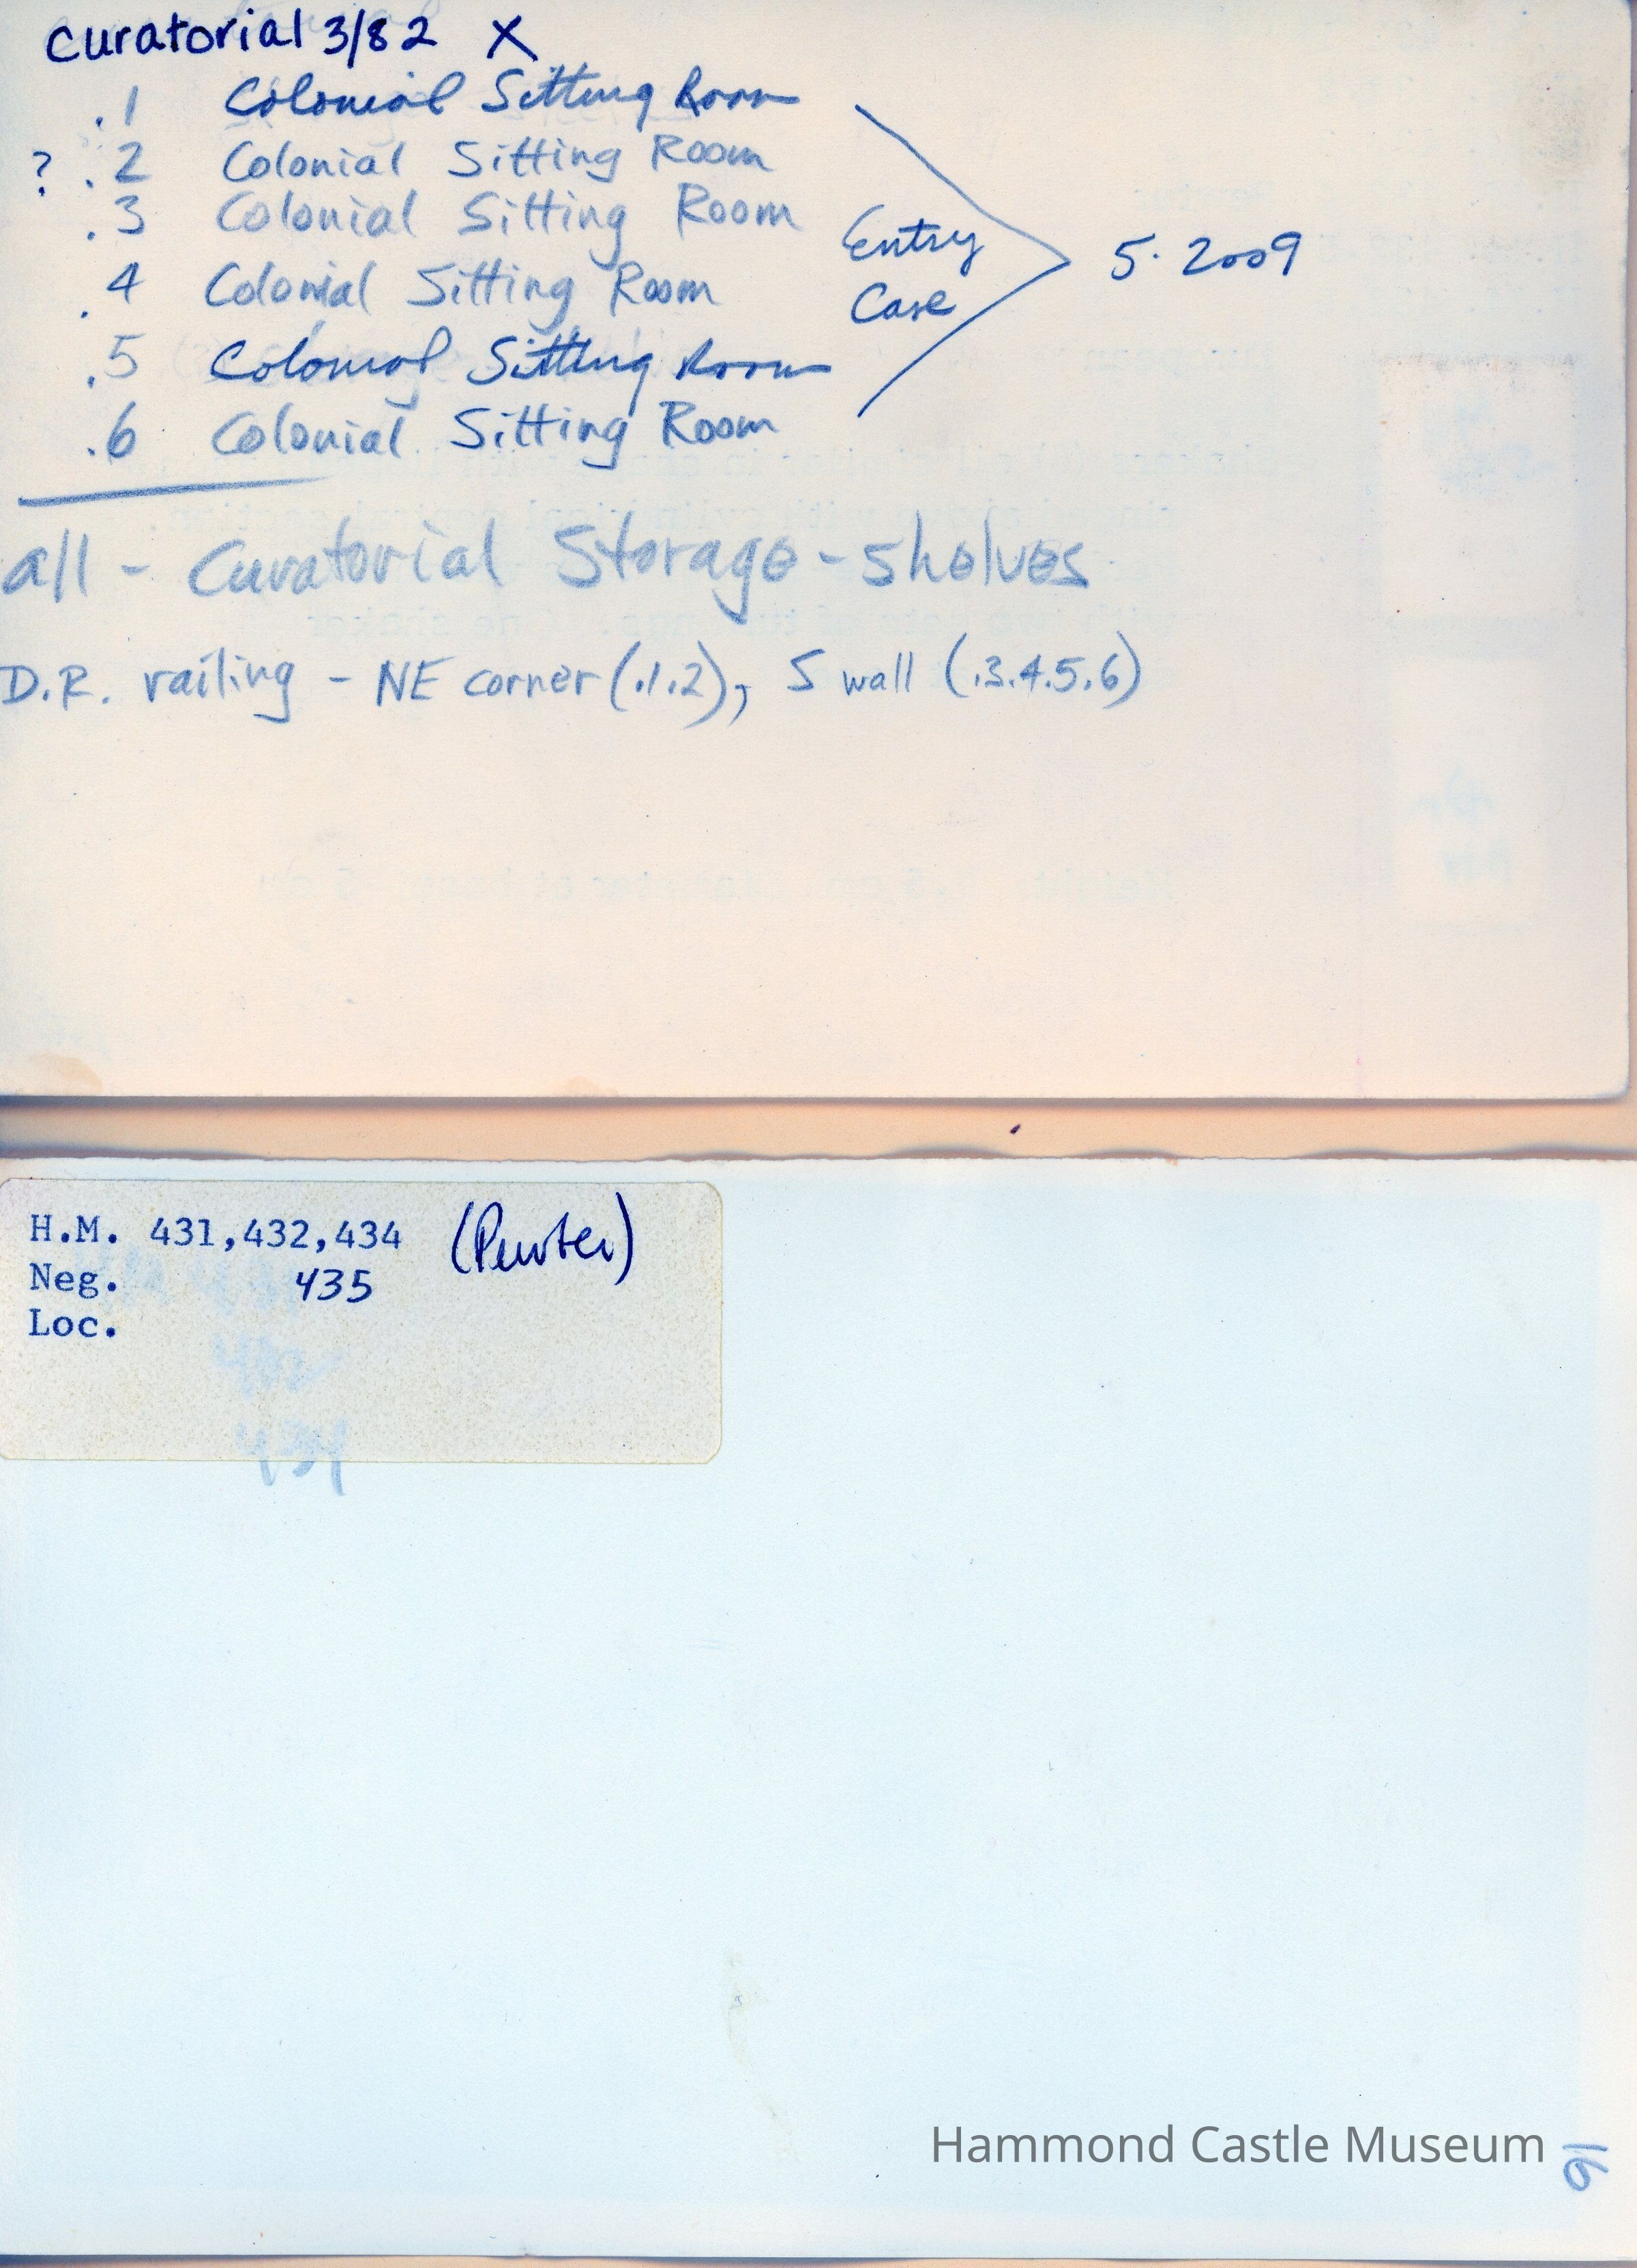 curatorial 3/82 X
.1 Colonial Sitting Room
? .2 Colonial Sitting Room
.3 Colonial Sitting Room
Entry
Case
5. 2009
.4 Colonial Sitting Room
.5 Colonial Sitting Room
.6 Colonial Sitting Room
all - Curatorial Storage - shelves
D.R. railing - NE corner (.1.2), S wall (.3.4.5.6)
H.M. 431,432,434 (Pewter)
Neg. 435
Loc.
Hammond Castle Museum
16